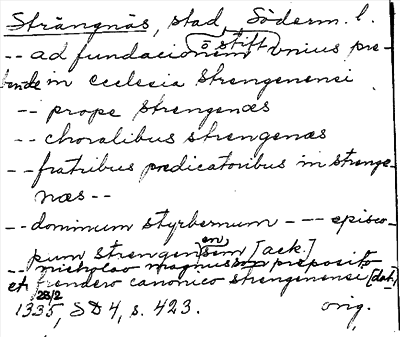 Strängnäs, stad, Söderm. l.
o stift
-- ad fundacionem vnius pre-
bende in ecclesia strengenensi
-- prope strengenæs
-- choralibus strengenæs
-- fratribus predicatoribus in strenge-
næs --
-- dominum styrbernum --- episco-
pum strengenensem [ack.]
-- nicholao magnusson preposito
et frendero canonico strengenensi [dat.]
28/2
1335, SD 4, s. 423. orig.